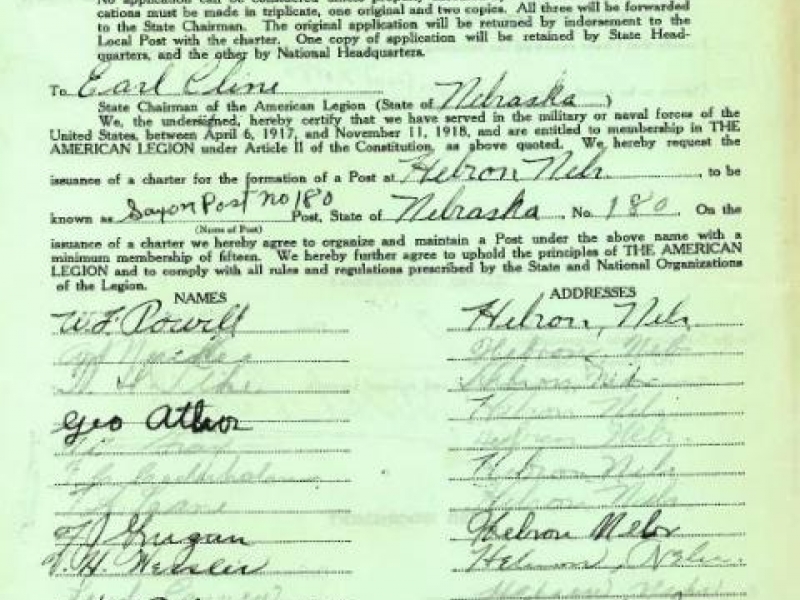 cations must be made in triplicate, one original and two copies. All three will be forwarded
to the State Chairman. The original application will be returned by indorsement to the
Local Post with the charter. One copy of application will be retained by State Head-
quarters, and the other by National Headquarters.
To Earl Cline
State Chairman of the American Legion (State of Nebraska)
We, the undersigned, hereby certify that we have served in the military or naval forces of the
United States, between April 6, 1917, and November 11, 1918, and are entitled to membership in THE
AMERICAN LEGION under Article II of the Constitution, as above quoted. We hereby request the
issuance of a charter for the formation of a Post at Hebron Nebr. to be
known as Saxon Post No 180 Post, State of Nebraska, No. 180. On the
(Name of Post)
issuance of a charter we hereby agree to organize and maintain a Post under the above name with a
minimum membership of fifteen. We hereby further agree to uphold the principles of THE AMERICAN
LEGION and to comply with all rules and regulations prescribed by the State and National Organizations
of the Legion.
NAMES ADDRESSES
W. F. Powill Hebron, Nebr
Hebron Nebr
Hebron, Nebr
Geo Hebron Nebr
Hebron Nebr
Hebron Nebr
Hebron Nebr
Hebron Nebr
H. Hebron, Nebr.